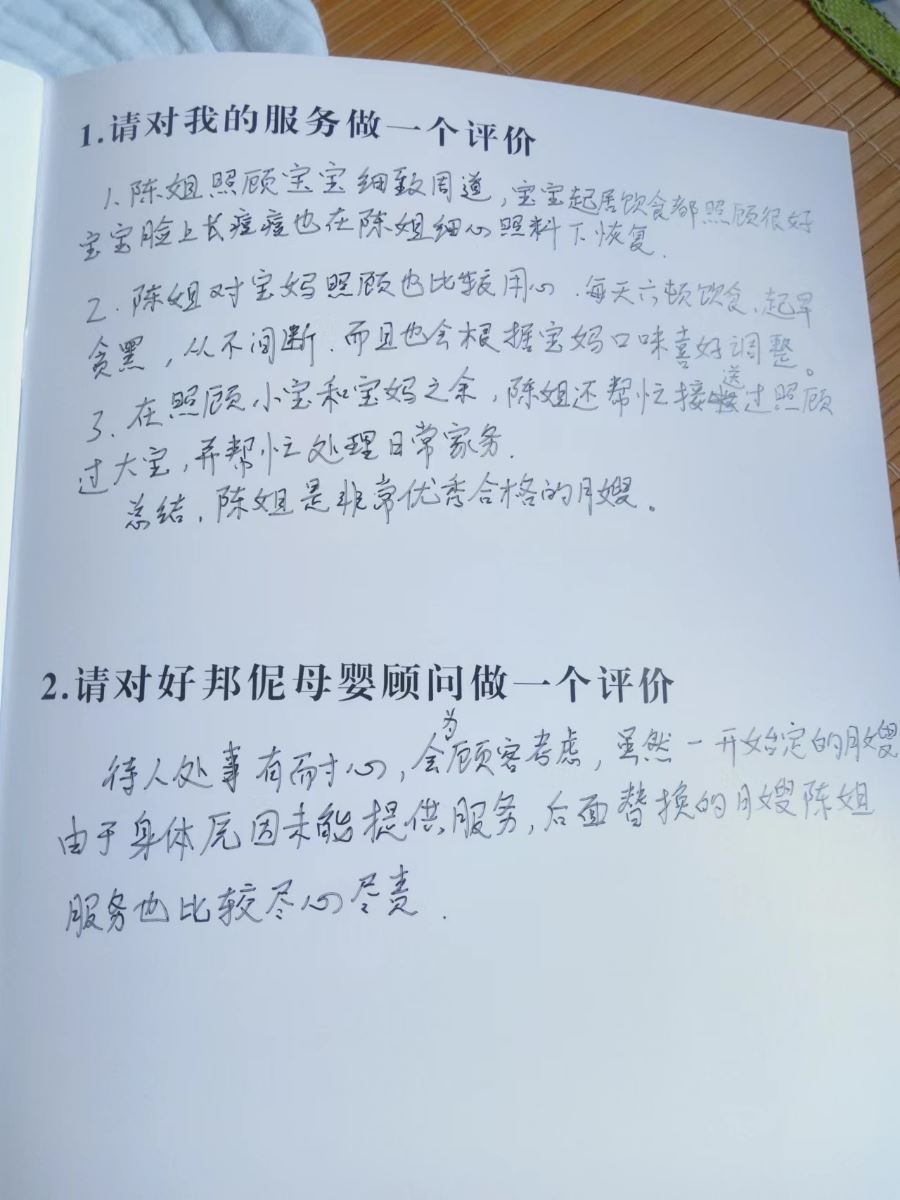 1.请对我的服务做一个评价
1.陈姐照顾宝宝细致周道，宝宝起居饮食都照顾很好
宝宝脸上长痘痘也在陈姐细心照料下恢复.
2.陈姐对宝妈照顾也比较用心.每天六顿饮食、起早
贪黑，从不间断.而且也会根据宝妈口味喜好调整。
3.在照顾小宝和宝妈之余，陈姐还帮忙接送过照顾
过大宝，并帮忙处理日常家务.
总结，陈姐是非常优秀合格的月嫂。
2.请对好邦伲母婴顾问做一个评价
待人处事有耐心，会为顾客考虑，虽然一开始定的月嫂
由于身体原因未能提供服务，后面替换的月嫂陈姐
服务也比较尽心尽责.